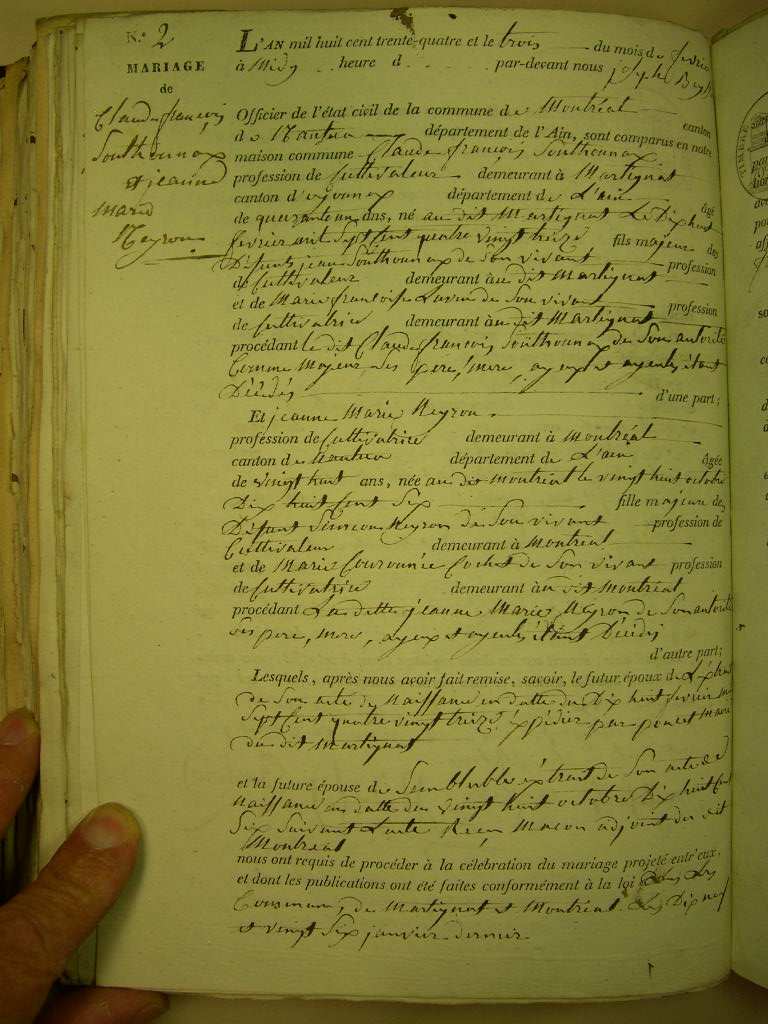 N.° 2
MARIAGE
de
Claude françois
Southonnax
et jeanne
marie
Neyron
L'AN mil huit cent trente-quatre et le trois du mois de fevrier
à Midy heure d par-devant nous joseph
Officier de l'état civil de la commune de Montréal canton
de Nantua département de l'Ain, sont comparus en notre
maison commune Claude françois Southonnax
profession de Cultivateur demeurant à Martignat
canton d'oyonnax département de L'ain âgé
de quarante un ans, né au dit Martignat Le Dix huit
fevrier mil sept Cent quatre vingt treize fils majeur des
Défunts jean Southonnax de Son vivant profession
de Cultivateur demeurant au dit Martignat
et de Marie françoise de Son vivant profession
de Cultivatrice demeurant au dit Martignat
procédant le dit Claude françois Southonnax de Son autorité
Comme Majeur Ses pere, mere, ayeux et ayeules étant
Décédés d'une part;
Et jeanne Marie Neyron.
profession de Cultivatrice demeurant à Montréal
canton de Nantua département de L'ain âgée
de vingt huit ans, née au dit Montréal le vingt huit octobre
Dix huit Cent Six fille majeure de
Défunt Neyron de Son vivant profession de
Cultivateur demeurant à Montréal
et de Marie Cochet de Son vivant profession
de Cultivatrice demeurant au dit Montréal
procédant La ditte jeanne Marie Neyron de Son autorité
Ses pere, mere, ayeux et ayeules étant Décédés
d'autre part;
Lesquels, après nous avoir fait remise, savoir, le futur époux de L'extrait
de Son acte de Naissance en datte du Dix huit fevrier mil
Sept Cent quatre vingt treize expédier par poncet Maire
du dit Martignat
et la future épouse de Semblable extrait de Son acte de
Naissance en datte du vingt huit octobre Dix huit Cent
Six Suivant L'acte Macon adjoint du dit
Montréal
nous ont requis de procéder à la célébration du mariage projeté entr'eux,
et dont les publications ont été faites conformément à la loi Dans Les
Communes de Martignat et Montréal Les Dix neuf
et vingt Six janvier dernier.